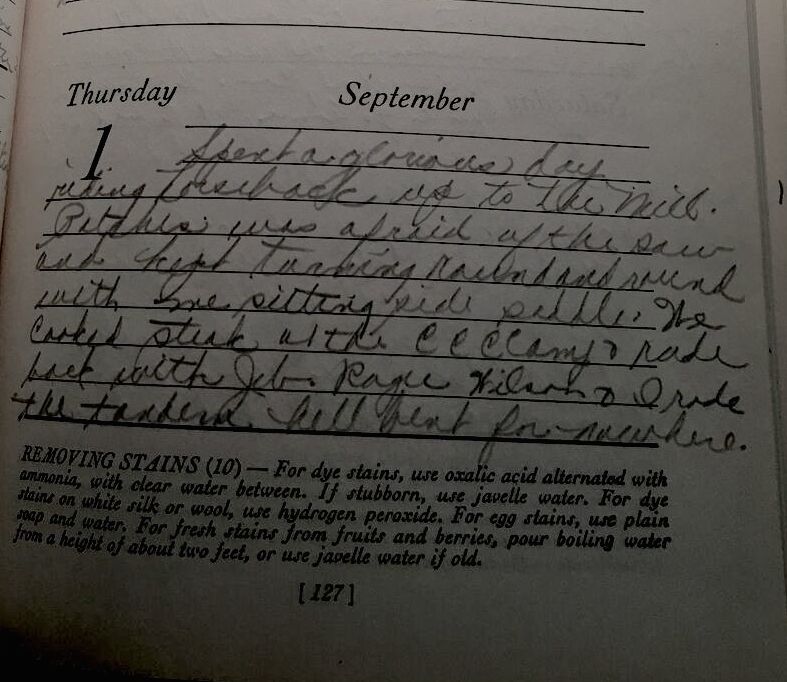 Thursday September
1 Spent a glorious day
riding horseback up to the Mill.
was afraid of the saw
and kept turning round and round
with me sitting side saddle. We
cooked steak at the CCC Camp & rode
back with Jeb. Wilson & I rode
the tandem hell bent for nowhere.
REMOVING STAINS (10) — For dye stains, use oxalic acid alternated with
ammonia, with clear water between. If stubborn, use javelle water. For dye
stains on white silk or wool, use hydrogen peroxide. For egg stains, use plain
soap and water. For fresh stains from fruits and berries, pour boiling water
from a height of about two feet, or use javelle water if old.
[127]